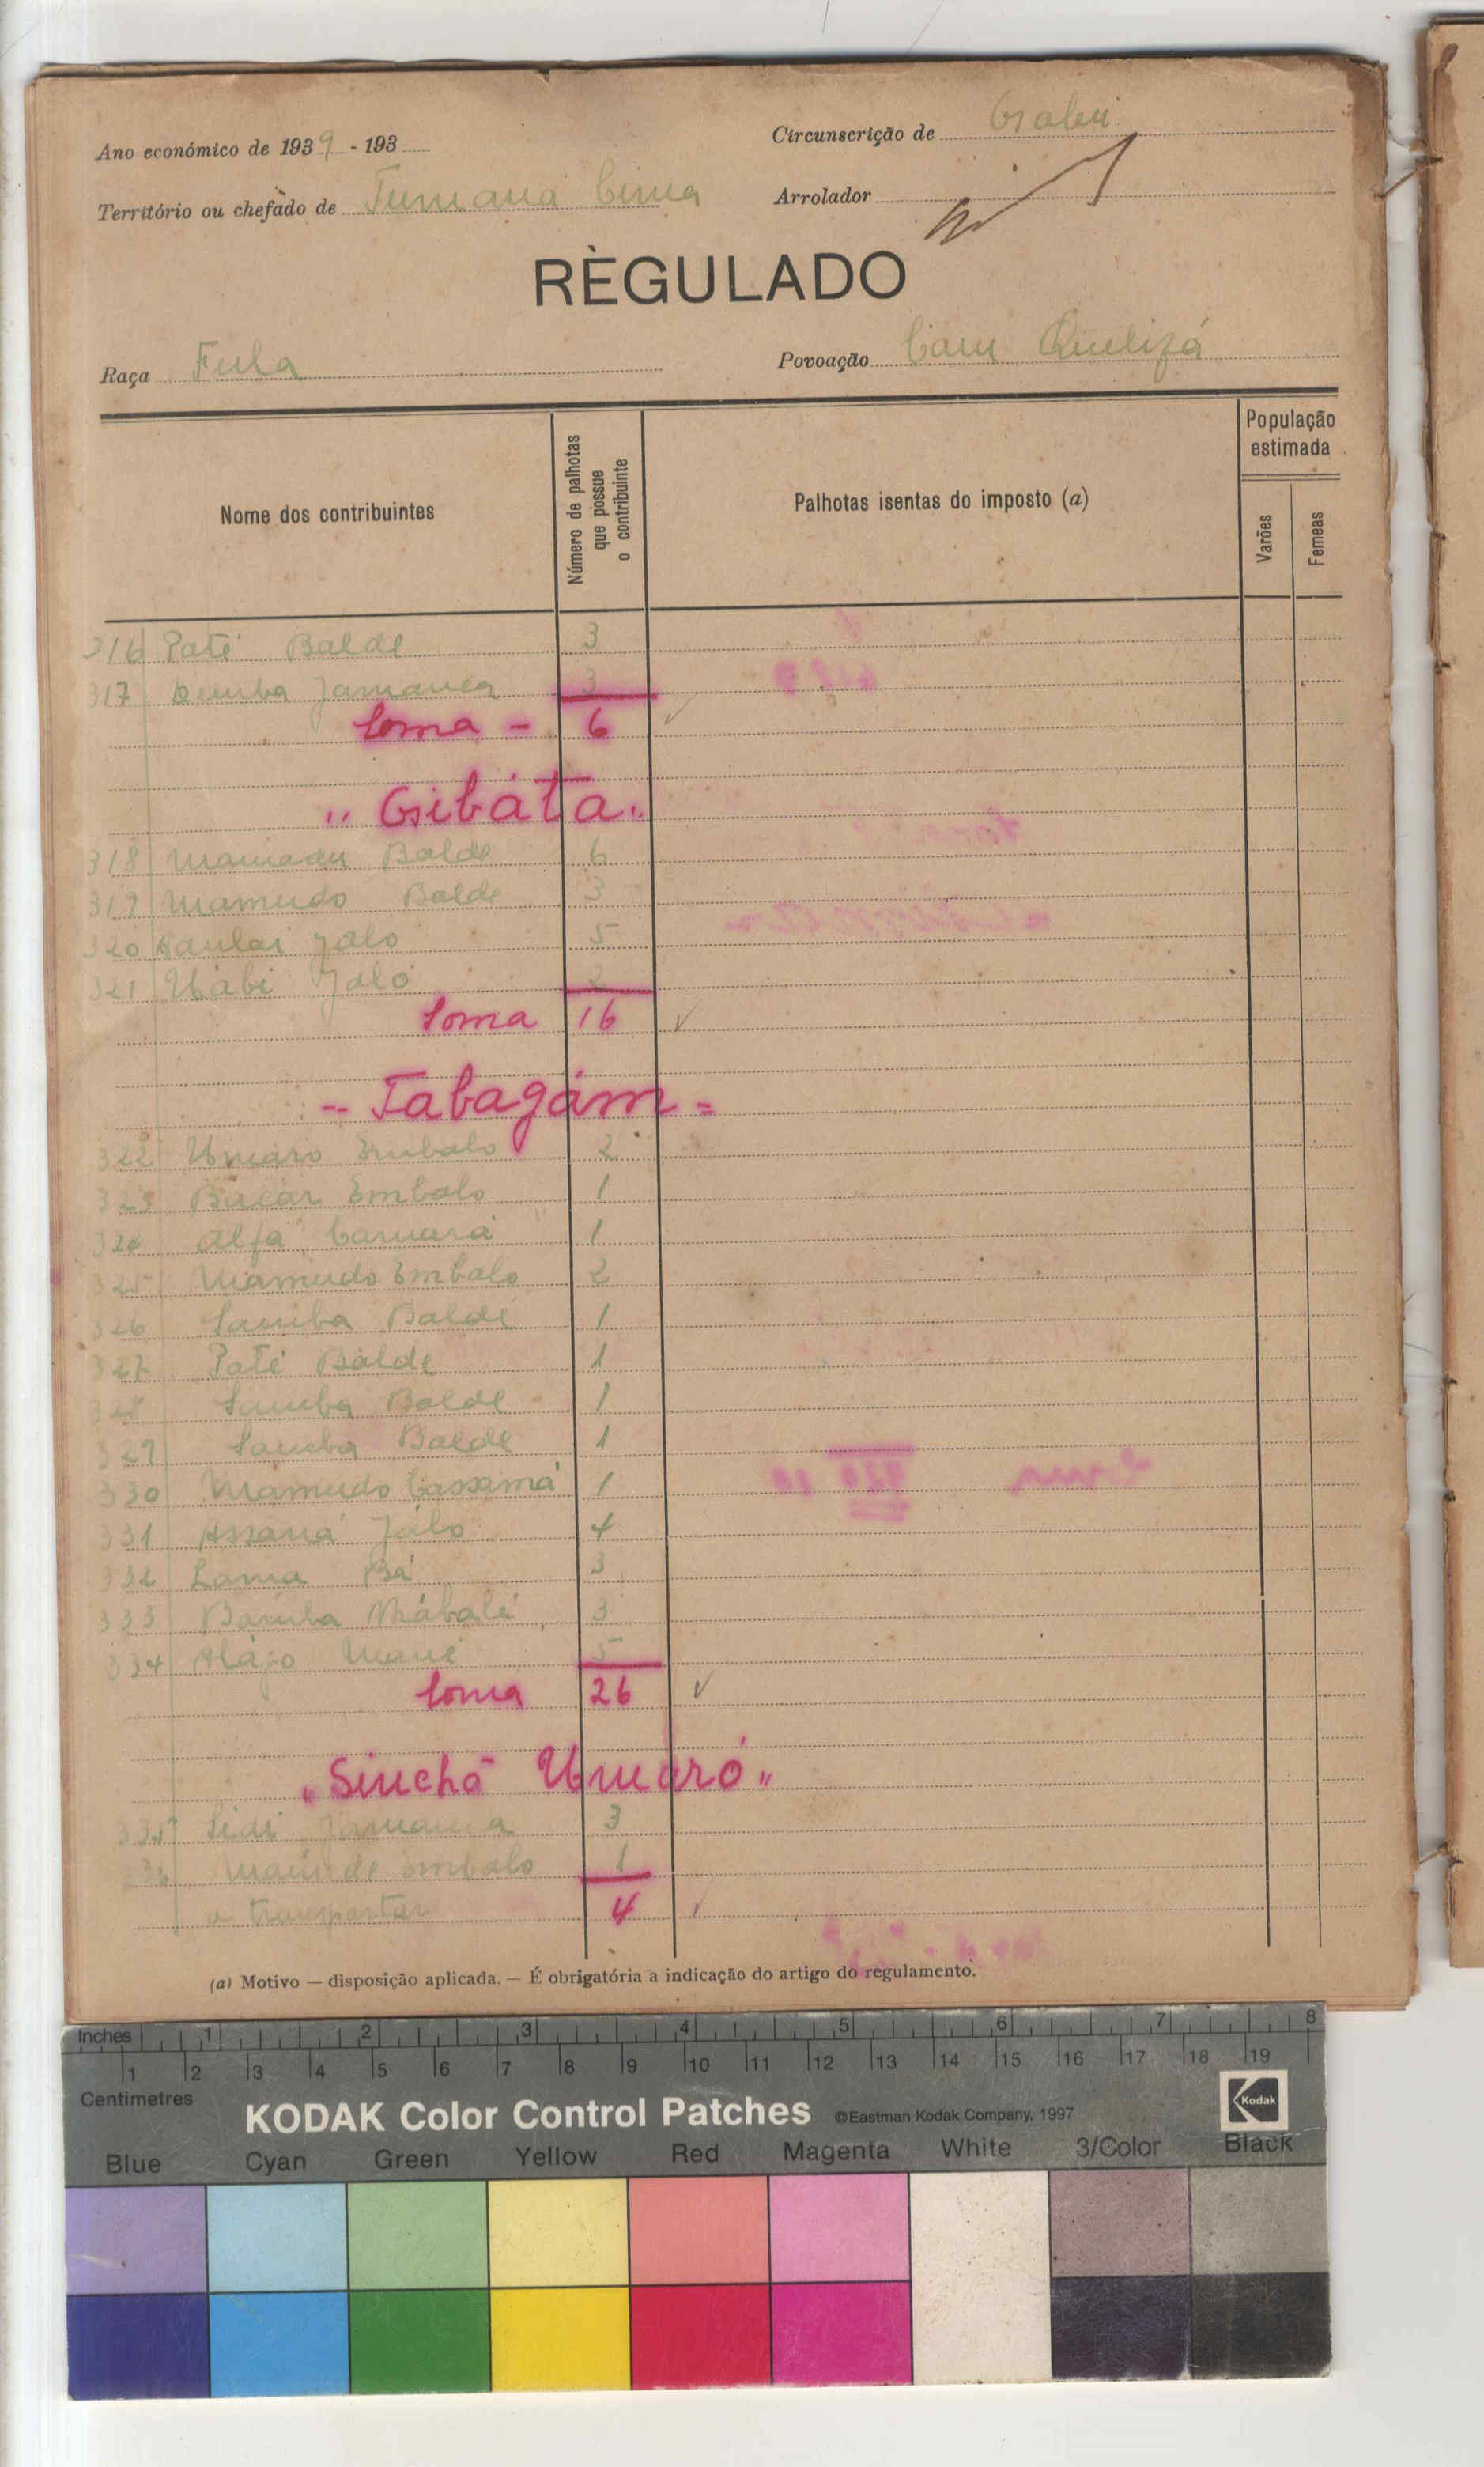 Ano económico de 1939 - 193
Circunscrição de Gabú
Território ou chefado de Tumaná Cima
Arrolador
RÈGULADO
Raça Fula
Povoação Cam Quelifá
Nome dos contribuintes
Número de palhotas que possue o contribuinte
Palhotas isentas do imposto (a)
População estimada
Varões
Femeas
316 Paté Balde 3
317 Demba Jamanca 3
Soma - 6
" Gibáta "
318 Mamadu Balde 6
319 Mamudo Balde 3
320 Jalo 5
321 Jaló 2
Soma 16
-- Tabagám =
322 Umaro Embalo 2
323 Bacar Embalo 1
324 Alfa Camará 1
325 Mamudo Embalo 2
326 Samba Balde 1
327 Paté Balde 1
328 Samba Balde 1
329 Samba Balde 1
330 Mamudo Cassamá 1
331 Assaná Jálo 4
332 Lama Bá 3
333 3
334 Alájo Mané 5
Soma 26
" Sinchã Umáró "
335 Sidi Jamanca 3
336 Embalo 1
a transportar 4
(a) Motivo — disposição aplicada. — É obrigatória a indicação do artigo do regulamento.
Inches 1 2 3 4 5 6 7 8
1 2 3 4 5 6 7 8 9 10 11 12 13 14 15 16 17 18 19
Centimetres
KODAK Color Control Patches ©Eastman Kodak Company, 1997 Kodak
Blue Cyan Green Yellow Red Magenta White 3/Color Black